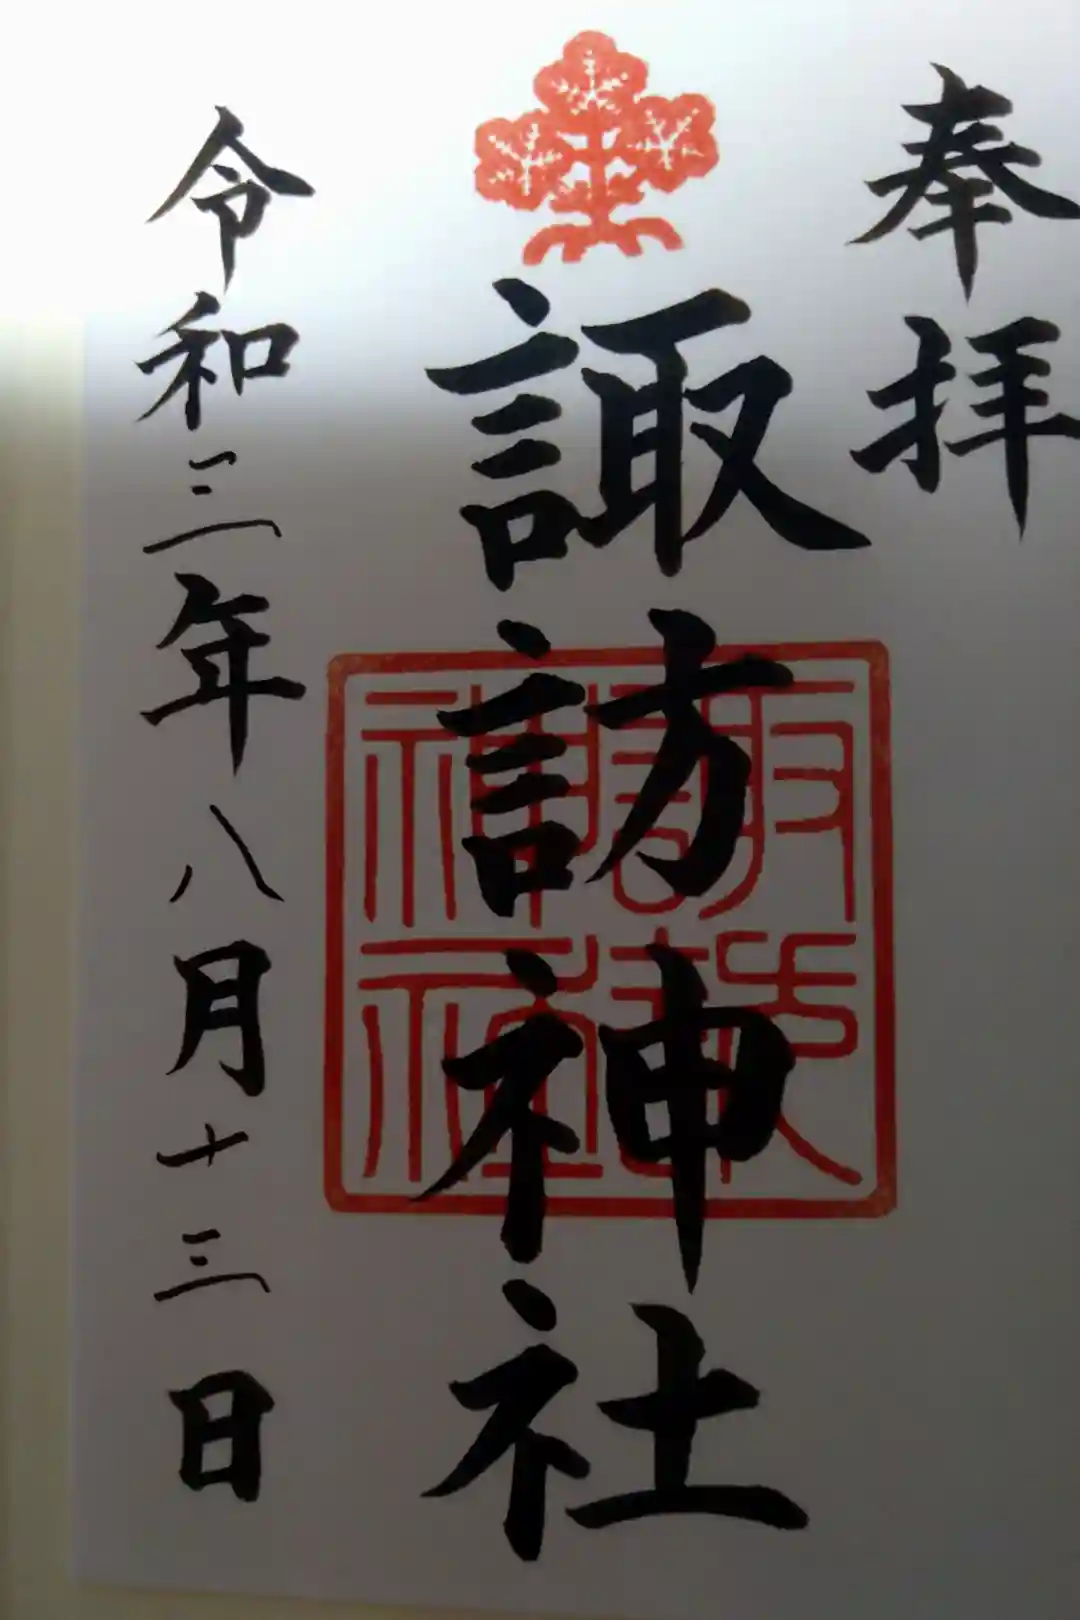 奉拝
諏訪神社
諏訪神社
令和三年八月十三日